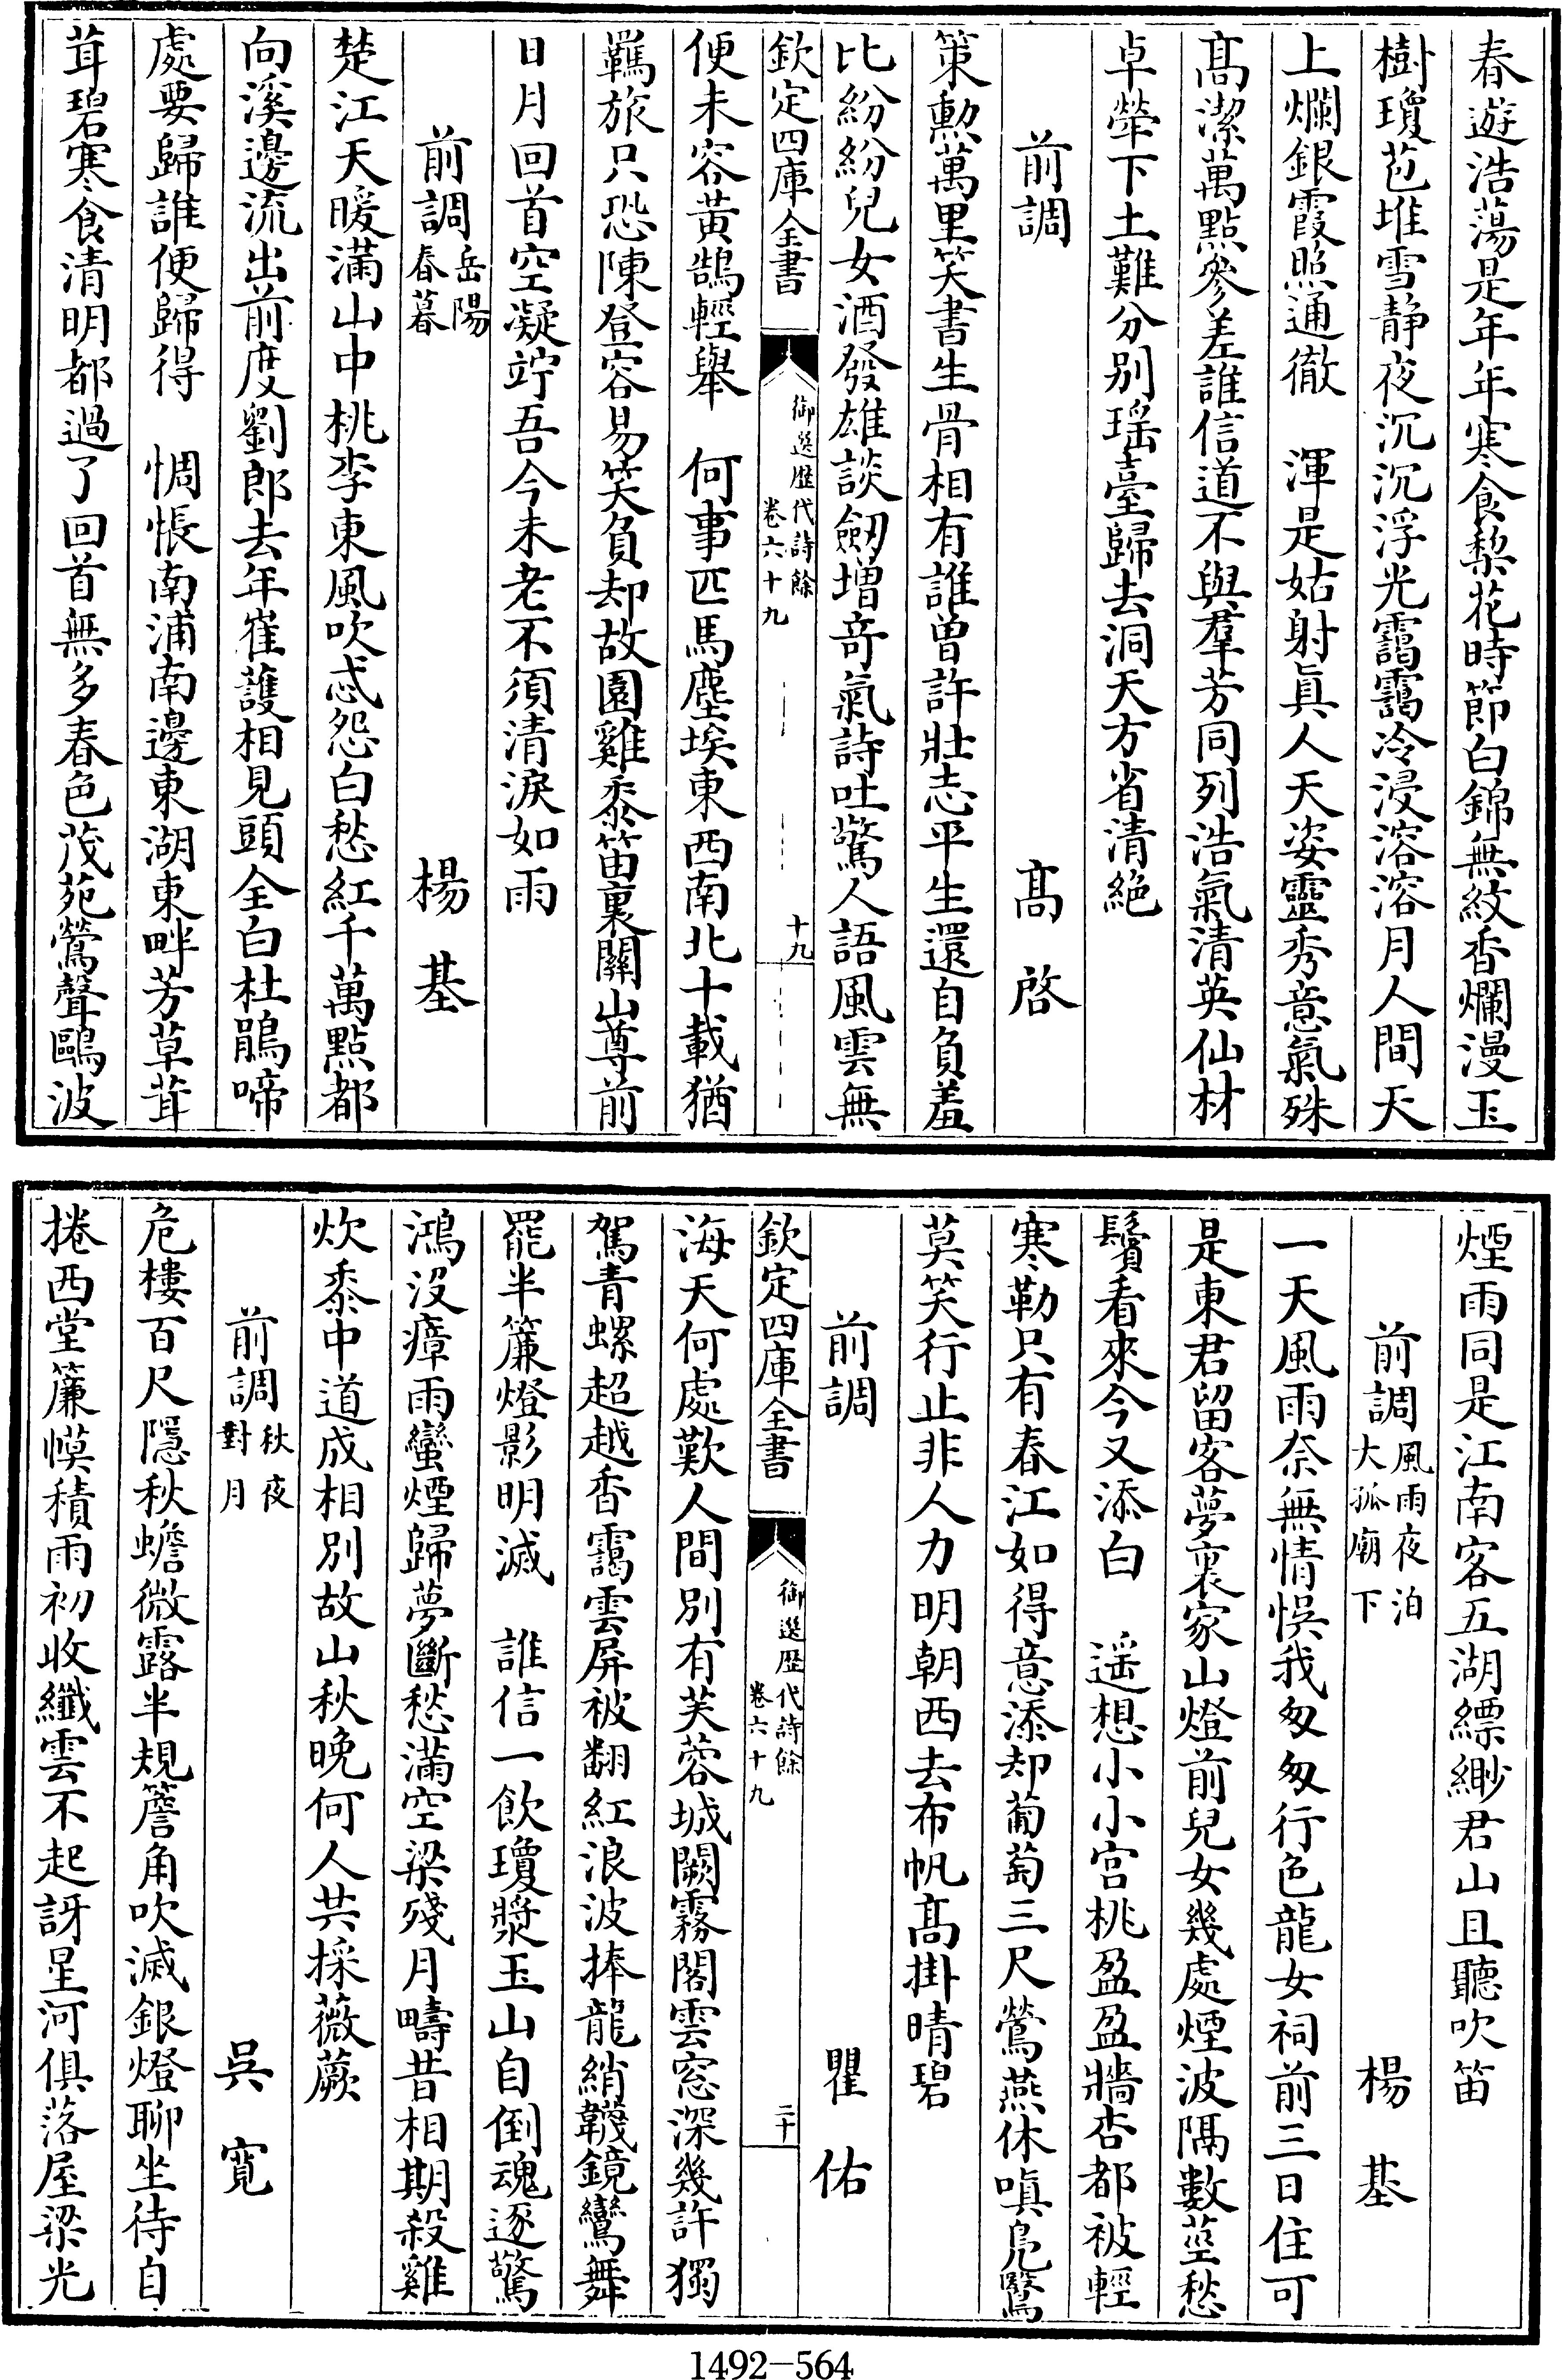 春遊浩蕩是年年寒食棃花時節白錦無紋香爛漫玉
樹瓊苞堆雪静夜沉沉浮光靄靄冷浸溶溶月人間天
上爛銀霞照通徹　渾是姑射眞人天姿靈秀意氣殊
髙潔萬㸃參差誰信道不與羣芳同列浩氣清英仙材
卓犖下土難分别瑶臺歸去洞天方省清絶
前調　髙啓
策勲萬里笑書生骨相有誰曾許壯志平生還自負羞
比紛紛兒女酒發雄談劒增竒氣詩吐驚人語風雲無
欽定四庫全書　御選歴代詩餘　卷六十九　十九
便未容黄鵠輕舉　何事匹馬塵埃東西南北十載猶
羈旅只恐陳登容易笑負却故園雞黍笛裏關山尊前
日月回首空凝竚吾今未老不須清淚如雨
前調岳陽春暮　楊基
楚江天暖滿山中桃李東風吹忒怨白愁紅千萬㸃都
向溪邊流出前度劉郎去年崔護相見頭全白杜鵑啼
處要歸誰便歸得　惆悵南浦南邊東湖東畔芳草茸
茸碧寒食清明都過了回首無多春色茂苑鶯聲鷗波
煙雨同是江南客五湖縹緲君山且聽吹笛
前調風雨夜泊大孤廟下　楊基
一天風雨奈無情悮我匆匆行色龍女祠前三日住可
是東君留客夢裏家山燈前兒女幾處煙波隔數莖愁
鬢看來今又添白　遥想小小宫桃盈盈牆杏都被輕
寒勒只有春江如得意添却葡萄三尺鶯燕休嗔鳧鷖
莫笑行止非人力明朝西去布帆髙掛晴碧
前調　瞿佑
欽定四庫全書　御選歴代詩餘　卷六十九　二十
海天何處歎人間别有芙蓉城闕霧閣雲窓深幾許獨
駕青螺超越香靄雲屏被翻紅浪波捧龍綃韈鏡鸞舞
罷半簾燈影明滅　誰信一飲瓊漿玉山自倒魂逐驚
鴻沒瘴雨蠻煙歸夢斷愁滿空梁殘月疇昔相期殺雞
炊黍中道成相别故山秋晚何人共採薇蕨
前調秋夜對月　吳寬
危樓百尺隱秋蟾微露半規簷角吹滅銀燈聊坐待自
捲西堂簾幙積雨初收纖雲不起訝星河俱落屋梁光
1492-564